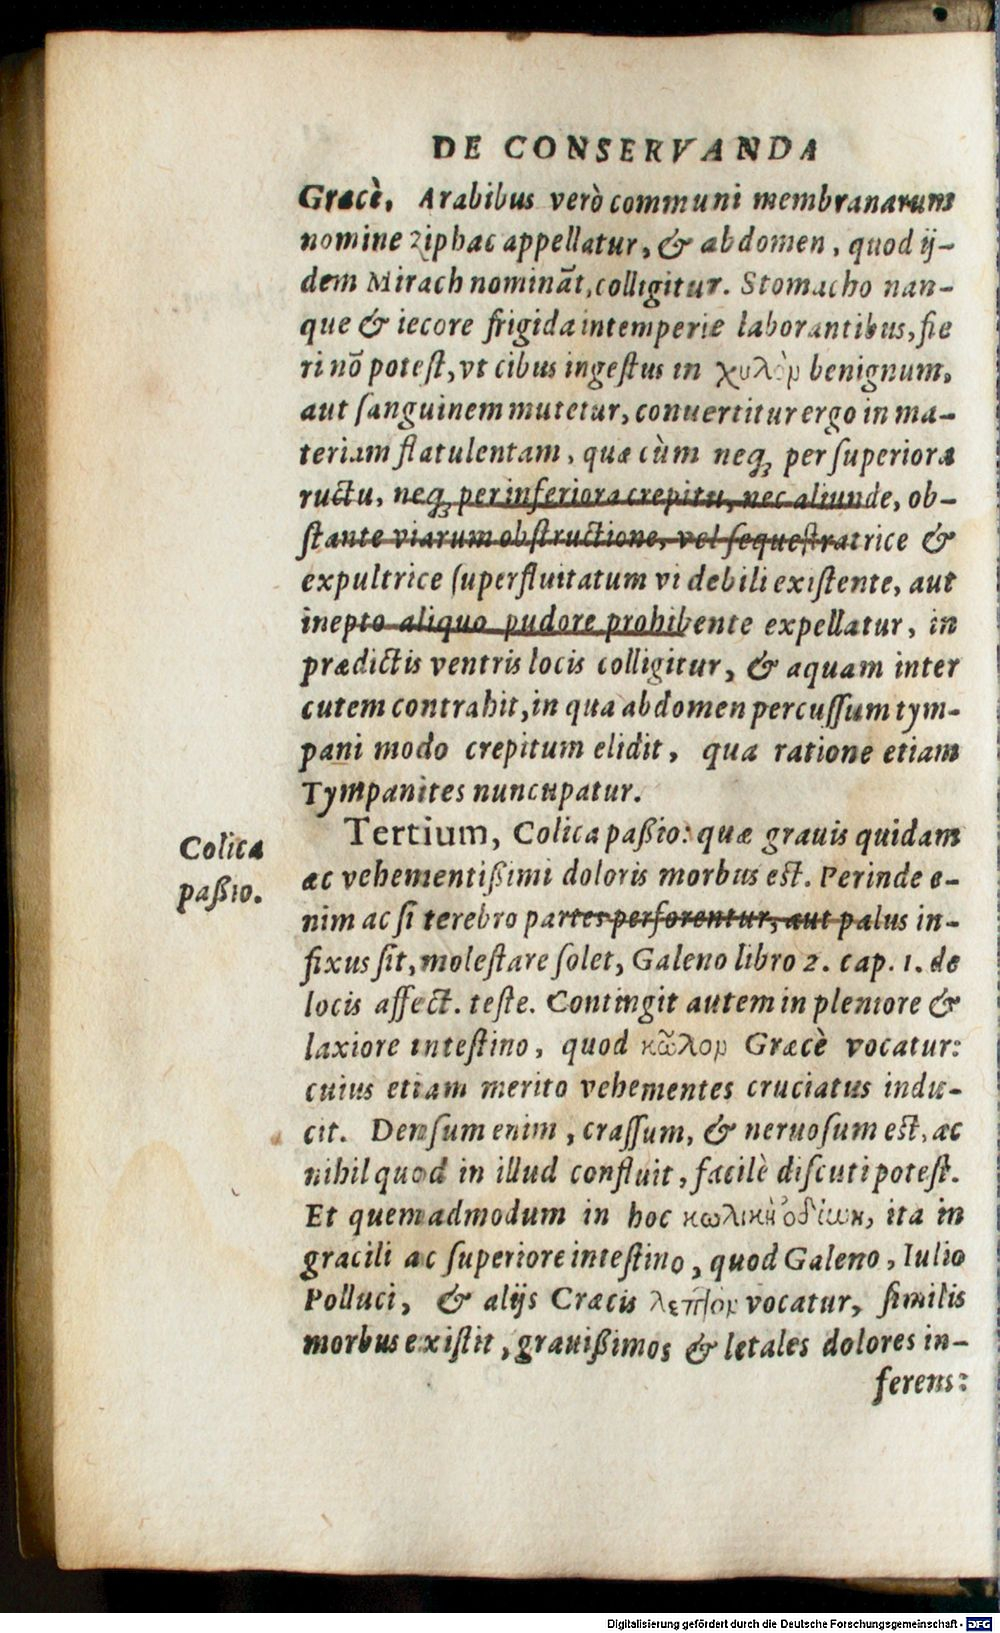 DE CONSERVANDA
Græcè, Arabibus verò communi membranarum
nomine ziphac appellatur, & abdomen, quod ij-
dem Mirach nominãt, colligitur. Stomacho nan-
que & iecore frigida intemperie laborantibus, fie
ri nõ potest, vt cibus ingestus in χυλὸν benignum,
aut sanguinem mutetur, conuertitur ergo in ma-
teriam flatulentam, quæ cùm neqꝫ per superiora
ructu, neqꝫ per inferiora crepitu, nec aliunde, ob-
stante viarum obstructione, vel sequestratrice &
expultrice superfluitatum vi debili existente, aut
inepto aliquo pudore prohibente expellatur, in
prædictis ventris locis colligitur, & aquam inter
cutem contrahit, in qua abdomen percussum tym-
pani modo crepitum elidit, qua ratione etiam
Tympanites nuncupatur.
Colica
paßio.
Tertium, Colica paßio: quæ grauis quidam
ac vehementißimi doloris morbus est. Perinde e-
nim ac si terebro partes perforentur, aut palus in-
fixus sit, molestare solet, Galeno libro 2. cap. 1. de
locis affect. teste. Contingit autem in pleniore &
laxiore intestino, quod κῶλον Græcè vocatur:
cuius etiam merito vehementes cruciatus indu-
cit. Densum enim, crassum, & neruosum est, ac
nihil quod in illud confluit, facilè discuti potest.
Et quemadmodum in hoc κωλικὴ ὀδίωη, ita in
gracili ac superiore intestino, quod Galeno, Iulio
Polluci, & alijs Græcis λεπτὸν vocatur, similis
morbus existit, grauißimos & letales dolores in-
ferens:
Digitalisierung gefördert durch die Deutsche Forschungsgemeinschaft - DFG